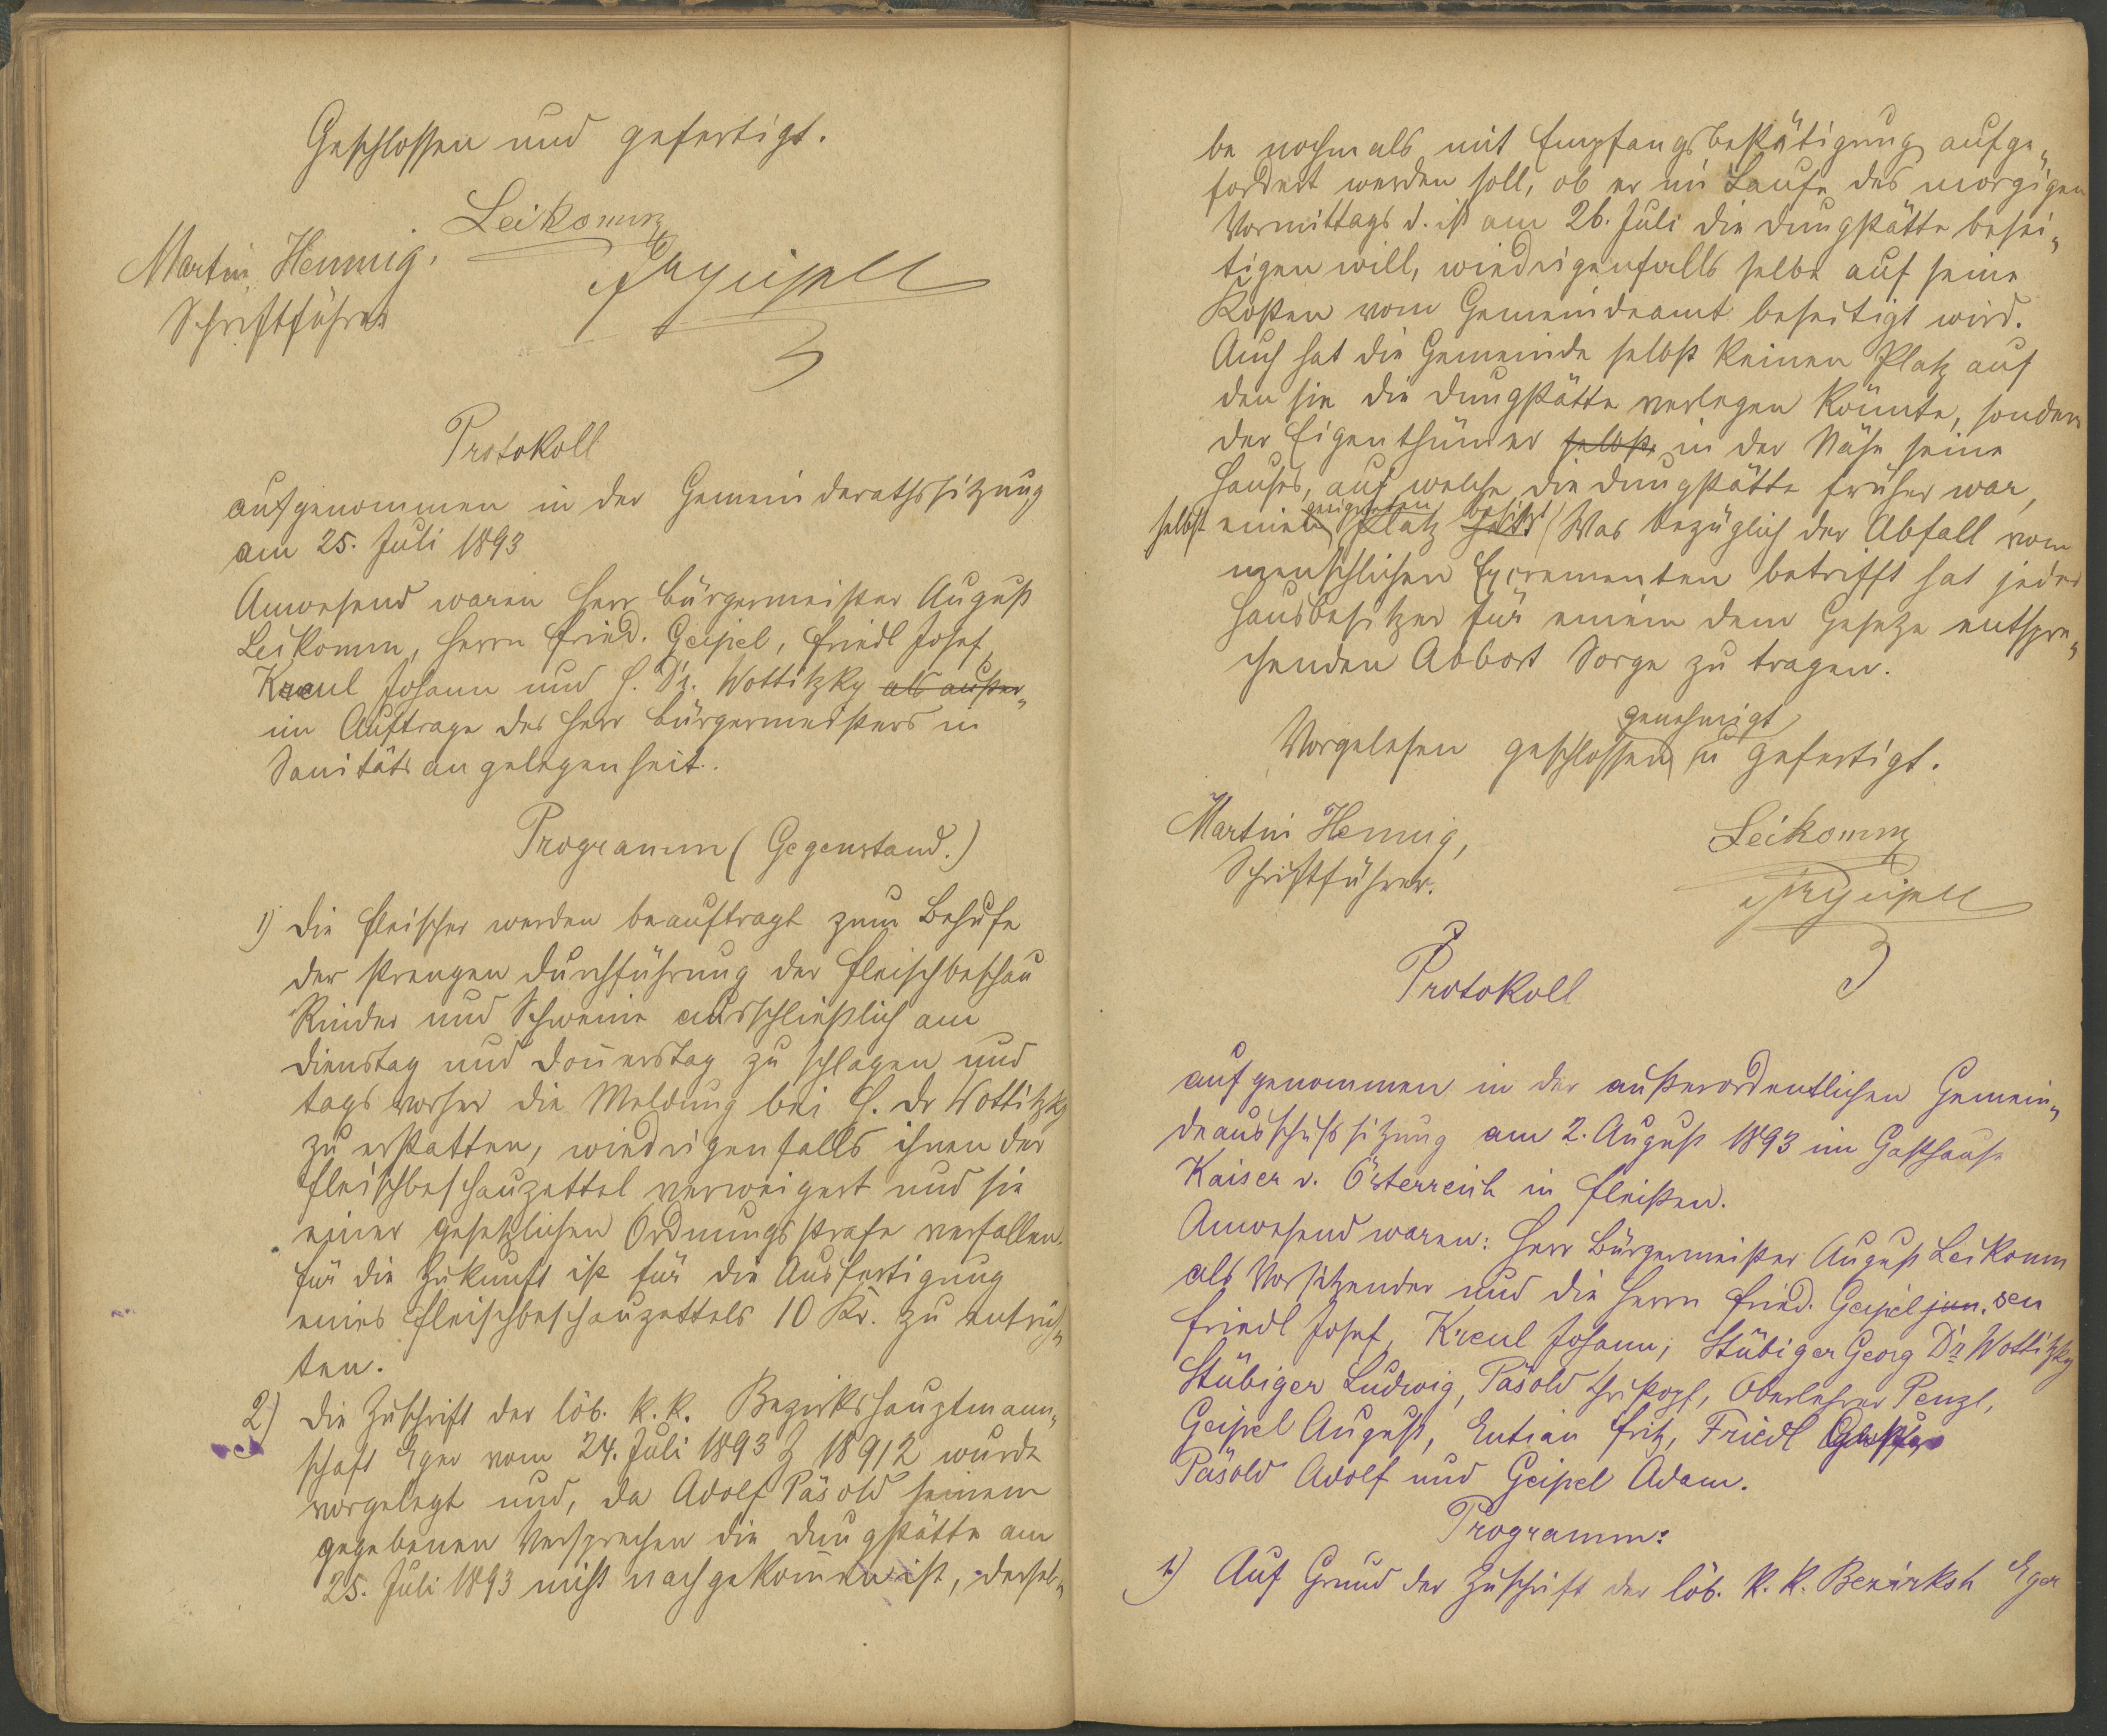 Geschlossen und gefertigt.
Leikomm
Martin Hennig,
Schriftführer
Frgeipel
Protokoll
aufgenommen in der Gemeinderathssitzung
am 25. Juli 1893
Anwesend waren Herr Bürgermeister August
Leikomm, Herrn Fried. Geipel, Friedl Josef,
Kreul Johann und H. Dr. Wottitzky als außer„
im Auftrage des Herr Bürgermeisters in
Sanitätsangelegenheit.
Programm (Gegenstand.)
1) Die Fleischer werden beauftragt zum Behufe
der strengen Durchführung der Fleischbeschau
Rinder und Schweine ausschließlich am
Dienstag und Donnerstag zu schlagen und
tags vorher die Meldung bei H. Dr Wottitzky
zu erstatten, wiedrigenfalls ihnen der
Fleischbeschauzettel verweigert und sie
einer gesetzlichen Ordnungsstrafe verfallen.
Für die Zukunft ist für die Ausfertigung
eines Fleischbeschauzettels 10 Kr. zu entrich„
ten.
2) Die Zuschrift der löb. k. k. Bezirkshauptmann„
schaft Eger vom 24. Juli 1893 Z 18912 wurde
vorgelegt und, da Adolf Päsold seinem
gegebenen Versprechen die Dungstätte am
25. Juli 1893 nicht nachgekommen ist, dersel„
be nochmals mit Empfangsbestätigung aufge„
fordert werden soll, ob er im Laufe des morgigen
Vormittags d. ist am 26. Juli die Dungstätte besei„
tigen will, wiedrigenfalls selbe auf seine
Kosten vom Gemeindeamt beseitigt wird.
Auch hat die Gemeinde selbst keinen Platz auf
den sie die Dungstätte verlegen könnte, sondern
der Eigenthümer selbst in der Nähe seine
Hauses, auf welche die Dungstätte früher war,
geeigneten besitzt
selbst einen Platz hat. Was bezüglich der Abfall vom
menschlichen Excrementen betrifft hat jeder
Hausbesitzer für einem dem Gesetze entspre„
chenden Abbort Sorge zu tragen.
genehmigt
Vorgelesen geschlossen u gefertigt.
Martin Hennig,
Schriftführer.
Leikomm
Frgeipel
Protokoll
aufgenommen in der außerordentlichen Gemein„
deausschußsitzung am 2. August 1893 im Gasthause
Kaiser v. Österreich in Fleißen.
Anwesend waren: Herr Bürgermeister August Leikomm
als Vorsitzender und die Herrn Fried. Geipel jun. sen
Friedl Josef, Kreul Johann, Stübiger Georg Dr Wottitzky
Stübiger Ludwig, Päsold Christoph, Oberlehrer Penzl,
Geipel August, Entian Fritz, Friedl
Päsold Adolf und Geipel Adam.
Programm:
1.) Auf Grund der Zuschrift der löb. k. k. Bezirksh Eger